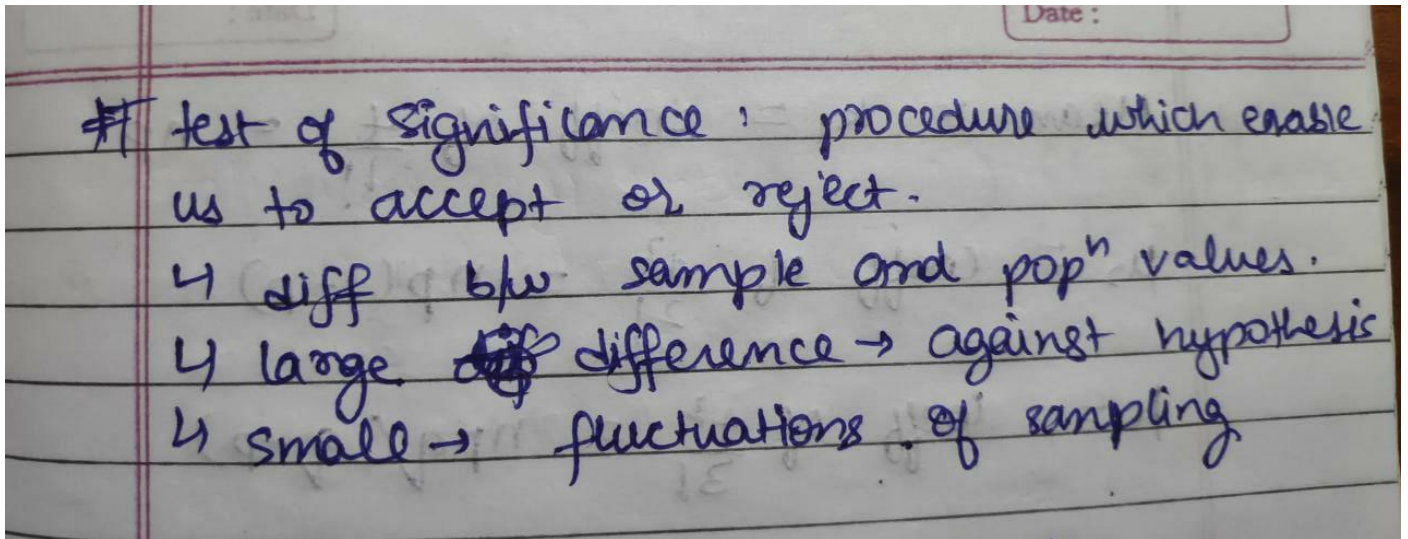 Date :
# test of significance : procedure which enable
us to accept or reject.
↳ diff b/w sample and popⁿ values.
↳ large difference → against hypothesis
↳ small → fluctuations of sampling